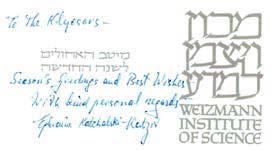 To the Klyesars -
מיטב האחולים
לשנה החדשה
Season's Greetings and Best Wishes
With kind personal regards -
Ephraim Katchalski-Katzir
מכון
ויצמן
למדע
WEIZMANN
INSTITUTE
OF SCIENCE